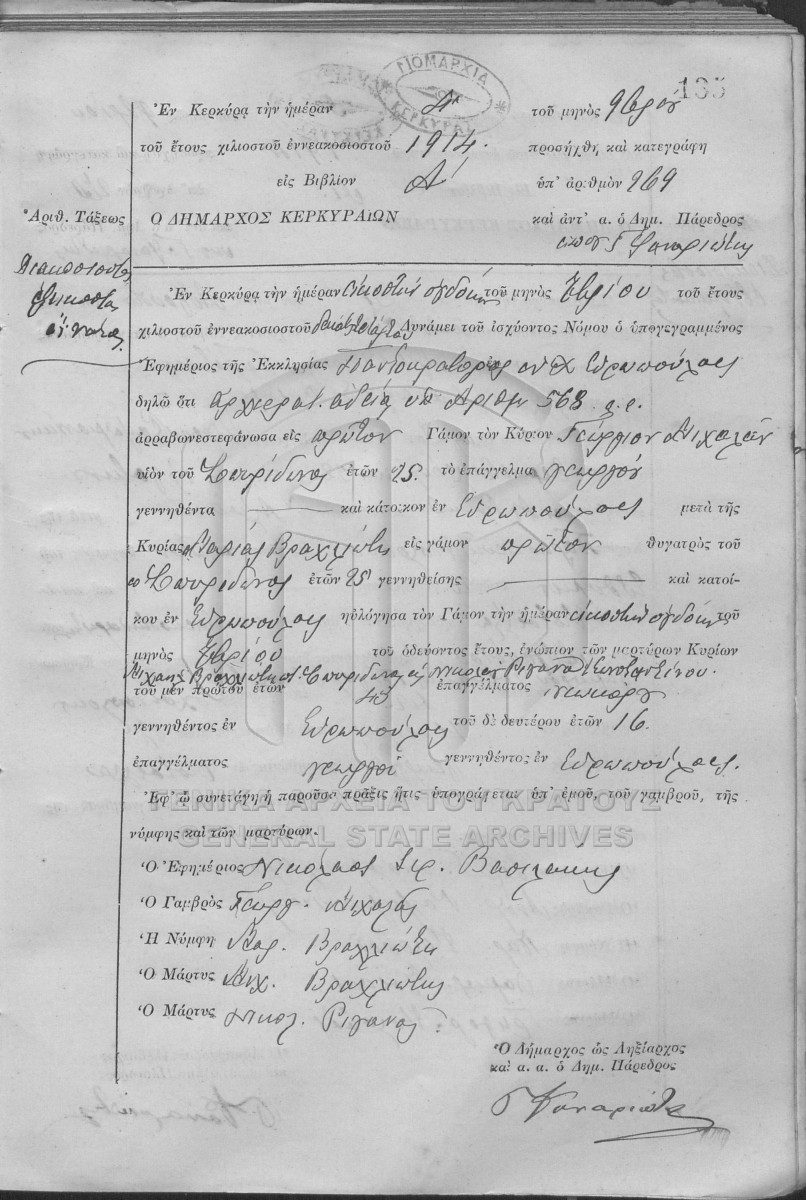 135
ΝΟΜΑΡΧΙΑ ΚΕΡΚΥΡΑΣ
Ἐν Κερκύρᾳ τὴν ἡμέραν 4ην τοῦ μηνὸς 9βρίου
τοῦ ἔτους χιλιοστοῦ ἐννεακοσιοστοῦ 1914. προσήχθη καὶ κατεγράφη
εἰς Βιβλίον Α' ὑπ' ἀριθμὸν 269
Ἀριθ. Τάξεως Ο ΔΗΜΑΡΧΟΣ ΚΕΡΚΥΡΑΙΩΝ καὶ ἀντ' α. ὁ Δημ. Πάρεδρος
Γ Φαναριώτης
Διακοσιοστὴ
ἑξηκοστὴ
ἐννάτη
Ἐν Κερκύρᾳ τὴν ἡμέραν εἰκοστὴν ὀγδόην τοῦ μηνὸς 7βρίου τοῦ ἔτους
χιλιοστοῦ ἐννεακοσιοστοῦ δεκάτου τετάρτου Δυνάμει τοῦ ἰσχύοντος Νόμου ὁ ὑπογεγραμμένος
Ἐφημέριος τῆς Ἐκκλησίας Παντοκράτορος Εὐρωπούλλας
δηλῶ ὅτι ἀρχιερατ. ἀδείᾳ ὑπ' Ἀριθμ 568 ἀ. ἐ.
ἀρραβωνεστεφάνωσα εἰς πρῶτον Γάμον τὸν Κύριον Γεώργιον Μιχαλᾶν
υἱὸν τοῦ Σπυρίδωνος ἐτῶν 25. τὸ ἐπάγγελμα γεωργόν
γεννηθέντα καὶ κάτοικον ἐν Εὐρωπούλλαις μετὰ τῆς
Κυρίας Μαρίας Βραχλιώτη εἰς γάμον πρῶτον θυγατρὸς τοῦ
Σπυρίδωνος ἐτῶν 25 γεννηθείσης καὶ κατοί-
κου ἐν Εὐρωπούλλαις ηὐλόγησα τὸν Γάμον τὴν ἡμέραν εἰκοστὴν ὀγδόην τοῦ
μηνὸς 7βρίου τοῦ ὁδεύοντος ἔτους, ἐνώπιον τῶν μαρτύρων Κυρίων
Μιχαὴλ Βραχλιώτης Σπυρίδωνος καὶ Νικολάου Ριγανᾶ Κωνσταντίνου.
τοῦ μὲν πρώτου ἐτῶν 43 ἐπαγγέλματος γεωργοῦ
γεννηθέντος ἐν Εὐρωπούλλαις τοῦ δὲ δευτέρου ἐτῶν 16.
ἐπαγγέλματος γεωργοῦ γεννηθέντος ἐν Εὐρωπούλλαις.
Ἐφ' ᾧ συνετάγη ἡ παροῦσα πράξις ἥτις ὑπογράφεται ὑπ' ἐμοῦ, τοῦ γαμβροῦ, τῆς
νύμφης καὶ τῶν μαρτύρων.
ΓΕΝΙΚΑ ΑΡΧΕΙΑ ΤΟΥ ΚΡΑΤΟΥΣ
GENERAL STATE ARCHIVES
Ὁ Ἐφημέριος Νικόλαος Ιερ. Βασιλάκης
Ὁ Γαμβρὸς Γεώργ. Μιχαλᾶς
Ἡ Νύμφη Μαρ. Βραχλιώτη
Ὁ Μάρτυς Μιχ. Βραχλιώτης
Ὁ Μάρτυς Νικολ. Ριγανᾶς
Ὁ Δήμαρχος ὡς Ληξίαρχος
καὶ α. α. ὁ Δημ. Πάρεδρος
Γ Φαναριώτης